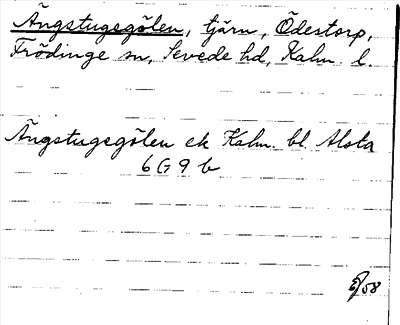 Ängstugegölen, tjärn, Ödestorp,
Frödinge sn, Sevede hd, Kalm. l.
Ängstugegölen ek Kalm. bl. Alsta
6 G 9 b
58